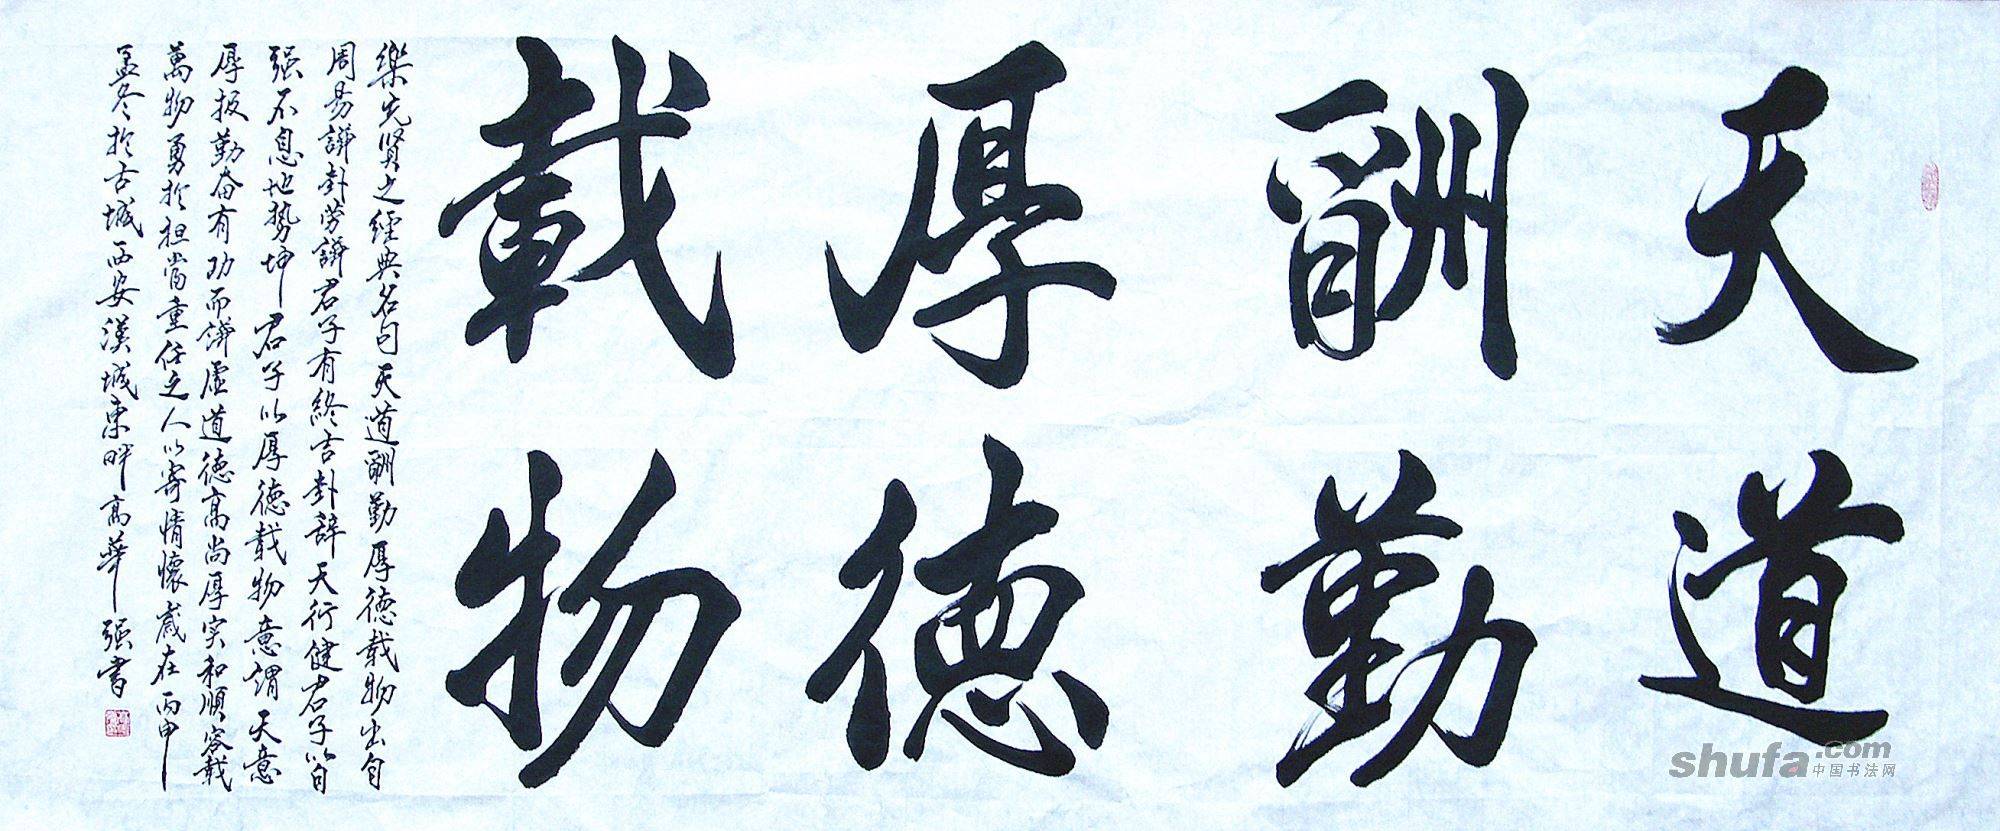 天道
酬勤
厚德
載物
樂先贤之經典名句天道酬勤厚德載物出自
周易謙卦勞謙君子有終吉卦辞天行健君子以自
强不息地势坤君子以厚德載物意谓天意
厚报勤奋有功而謙虚道德高尚厚实和順容載
萬物勇於担當重任之人以寄情懷歲在丙申
孟冬於古城西安漢城東畔高華强書
shufa.com
中国书法网